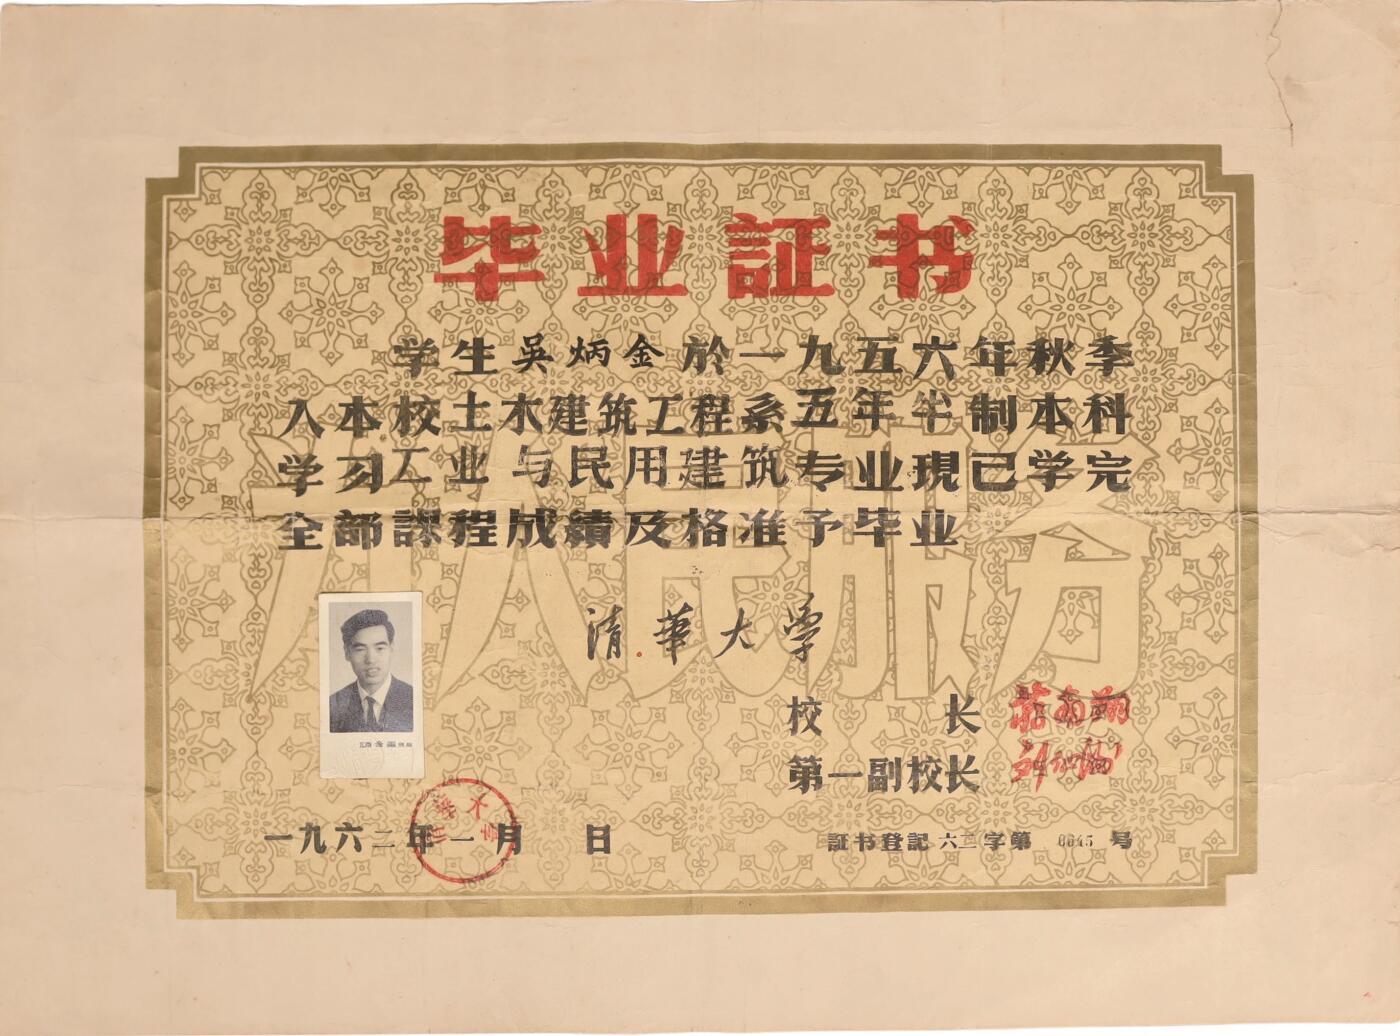 毕业証书
学生吳炳金於一九五六年秋季
入本校土木建筑工程系五年半制本科
学习工业与民用建筑专业現已学完
全部課程成績及格准予毕业
为人民服务
清華大学
校 长 蔣南翔
第一副校长 刘仙洲
清華大学
一九六二年一月 日
証书登記六二字第 0645 号